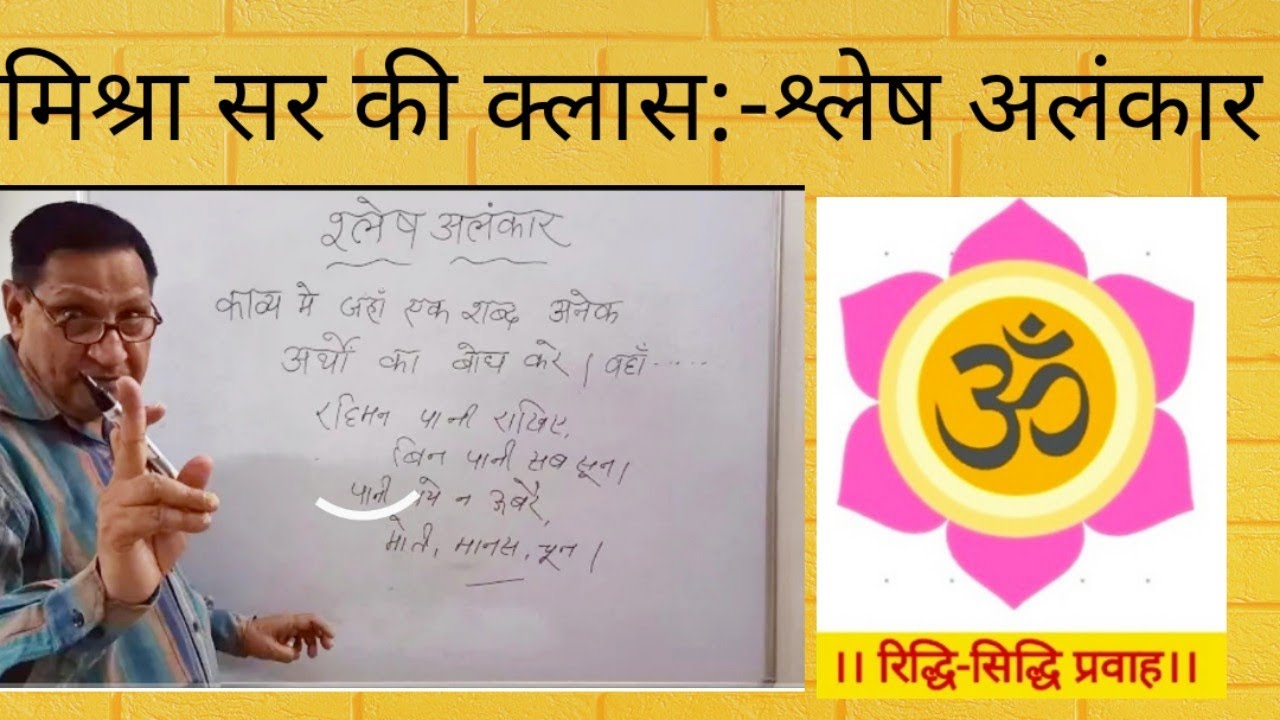 मिश्रा सर की क्लास:-श्लेष अलंकार
श्लेष अलंकार
काव्य मे जहाँ एक शब्द अनेक
अर्थो का बोध करे। वहाँ.....
रहिमन पानी राखिए,
बिन पानी सब सून।
पानी गये न ऊबरै,
मोती, मानस, चून।
ॐ
।। रिद्धि-सिद्धि प्रवाह।।